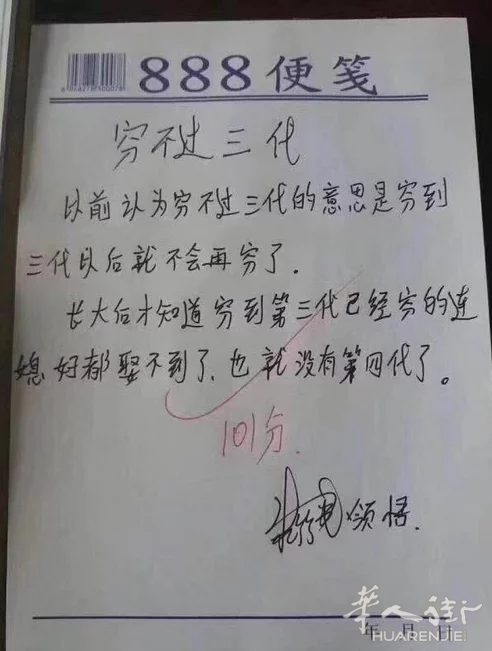 888便笺
穷不过三代
以前认为穷不过三代的意思是穷到
三代以后就不会再穷了.
长大后才知道穷到第三代已经穷的连
媳妇都娶不到了、也就没有第四代了。
101分.
领悟.
年 月 日
华人街
HUARENJIE!